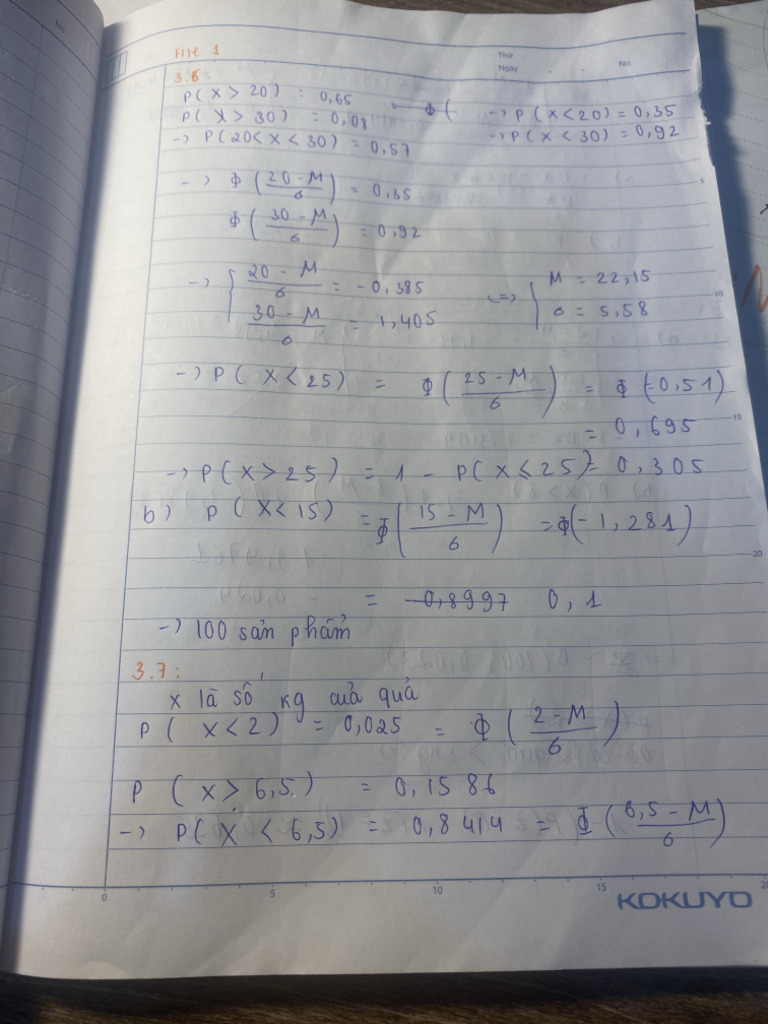 File 1
Thứ
Ngày . . No.
3.6:
P( X > 20) = 0,65 Φ( → P( X<20) = 0,35
P( X > 30) = 0,08 → P( X < 30) = 0,92
→ P(20< X < 30) = 0,57
→ Φ(20 - M / 6) = 0,35
Φ(30 - M / 6) = 0,92
→ { 20 - M / 6 = - 0,385 <=> { M = 22,15
30 - M / 6 = 1,405 6 = 5,58
→ P( X < 25) = Φ(25 - M / 6) = Φ(-0,51)
= 0,695
→ P( X > 25) = 1 - P( X ≤ 25) = 0,305
b) P( X < 15) = Φ(15 - M / 6) = Φ(- 1,281)
= -0,8997 0,1
→ 100 sản phẩm
3.7:
X là số kg của quả
P( X < 2) = 0,025 = Φ(2 - M / 6)
P( X > 6,5) = 0,1586
→ P( X < 6,5) = 0,8414 = Φ(6,5 - M / 6)
5
10
15
20
0 5 10 15 20
KOKUYO